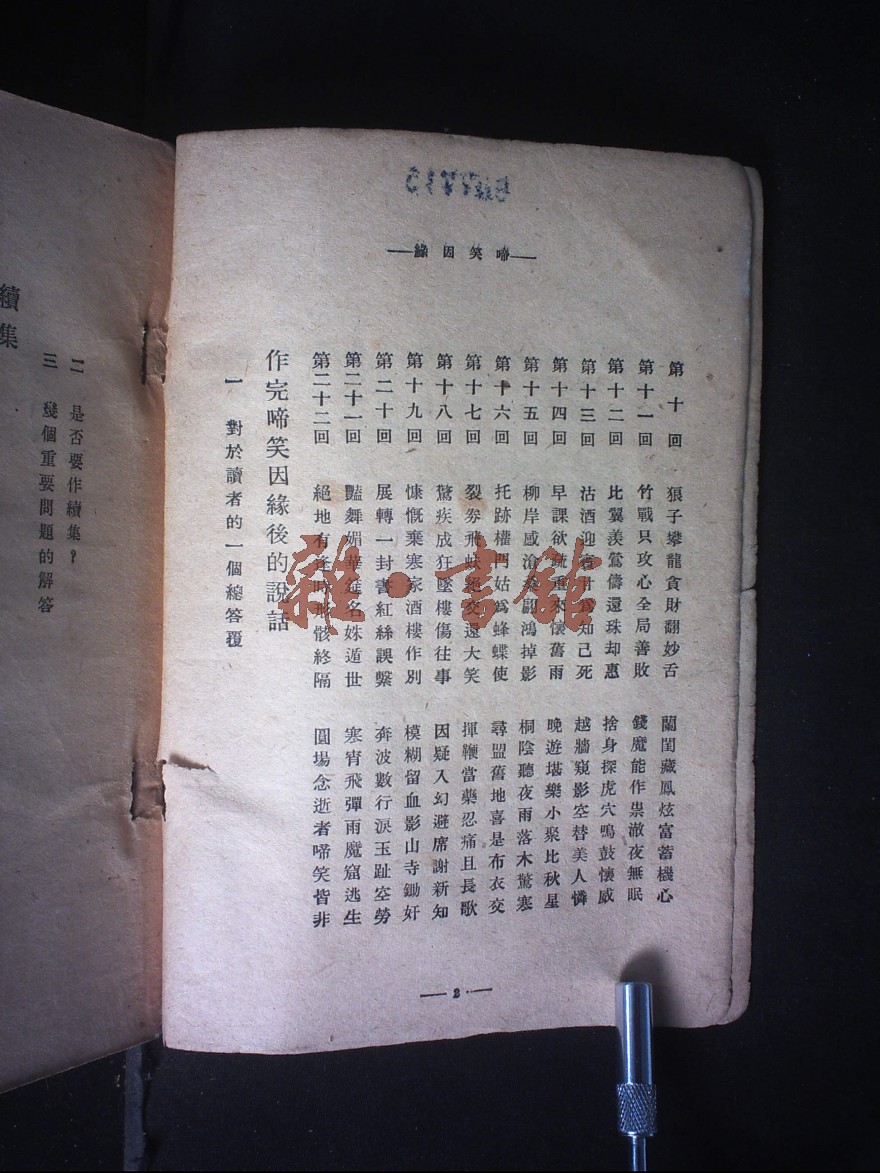 啼笑因緣
第十回 狼子攀龍貪財翻妙舌 蘭閨藏鳳炫富蓄機心
第十一回 竹戰只攻心全局善敗 錢魔能作祟澈夜無眠
第十二回 比翼羨鶯儔還珠却惠 捨身探虎穴鳴鼓懷威
第十三回 沽酒迎賓甘爲知己死 越牆窺影空替美人憐
第十四回 早課欲疏重來懷舊雨 晚遊堪樂小聚比秋星
第十五回 柳岸感滄桑翩鴻掉影 桐陰聽夜雨落木驚寒
第十六回 托跡權門姑爲蜂蝶使 尋盟舊地喜是布衣交
第十七回 裂券飛蚨絕交還大笑 揮鞭當藥忍痛且長歌
第十八回 驚疾成狂墜樓傷往事 因疑入幻避席謝新知
第十九回 慷慨棄寒家酒樓作別 模糊留血影山寺鋤奸
第二十回 展轉一封書紅絲誤繫 奔波數行淚玉趾空勞
第二十一回 豔舞媚華筵名姝遁世 寒宵飛彈雨魔窟逃生
第二十二回 絕地有逢時形骸終隔 圓場念逝者啼笑皆非
作完啼笑因緣後的說話
一 對於讀者的一個總答覆
2
二 是否要作續集？
三 幾個重要問題的解答
續集
雜·書館